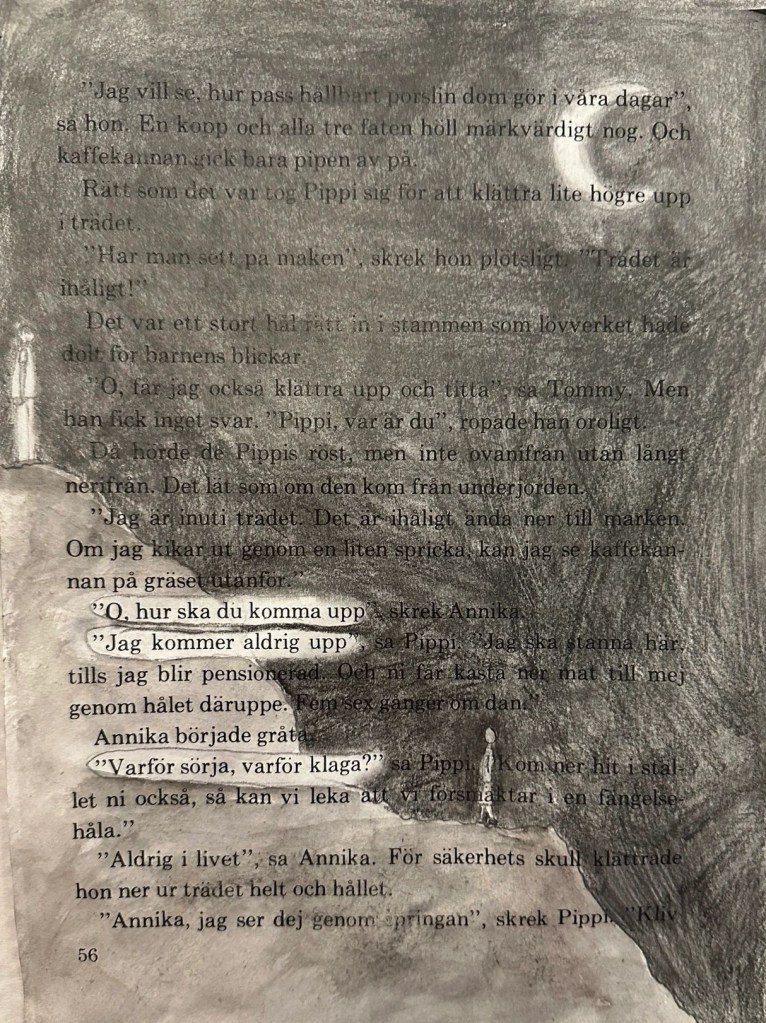 ”Jag vill se, hur pass hållbart porslin dom gör i våra dagar”,
sa hon. En kopp och alla tre faten höll märkvärdigt nog. Och
kaffekannan gick bara pipen av på.
Rätt som det var tog Pippi sig för att klättra lite högre upp
i trädet.
”Har man sett på maken”, skrek hon plötsligt. ”Trädet är
ihåligt!”
Det var ett stort hål rätt in i stammen som lövverket hade
dolt för barnens blickar.
”O, får jag också klättra upp och titta”, sa Tommy. Men
han fick inget svar. ”Pippi, var är du”, ropade han oroligt.
Då hörde de Pippis röst, men inte ovanifrån utan långt
nerifrån. Det lät som om den kom från underjorden.
”Jag är inuti trädet. Det är ihåligt ända ner till marken.
Om jag kikar ut genom en liten spricka, kan jag se kaffekan-
nan på gräset utanför.”
”O, hur ska du komma upp”, skrek Annika.
”Jag kommer aldrig upp”, sa Pippi. ”Jag ska stanna här,
tills jag blir pensionerad. Och ni får kasta ner mat till mej
genom hålet däruppe. Fem sex gånger om dan.”
Annika började gråta.
”Varför sörja, varför klaga?” sa Pippi. ”Kom ner hit i stäl-
let ni också, så kan vi leka att vi försmäktar i en fängelse-
håla.”
”Aldrig i livet”, sa Annika. För säkerhets skull klättrade
hon ner ur trädet helt och hållet.
”Annika, jag ser dej genom springan”, skrek Pippi. ”Kliv
56